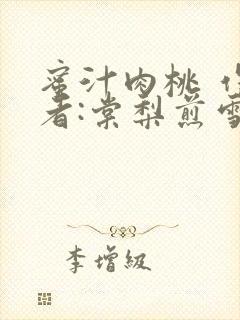 蜜汁肉桃
者:棠梨煎雪
李增級